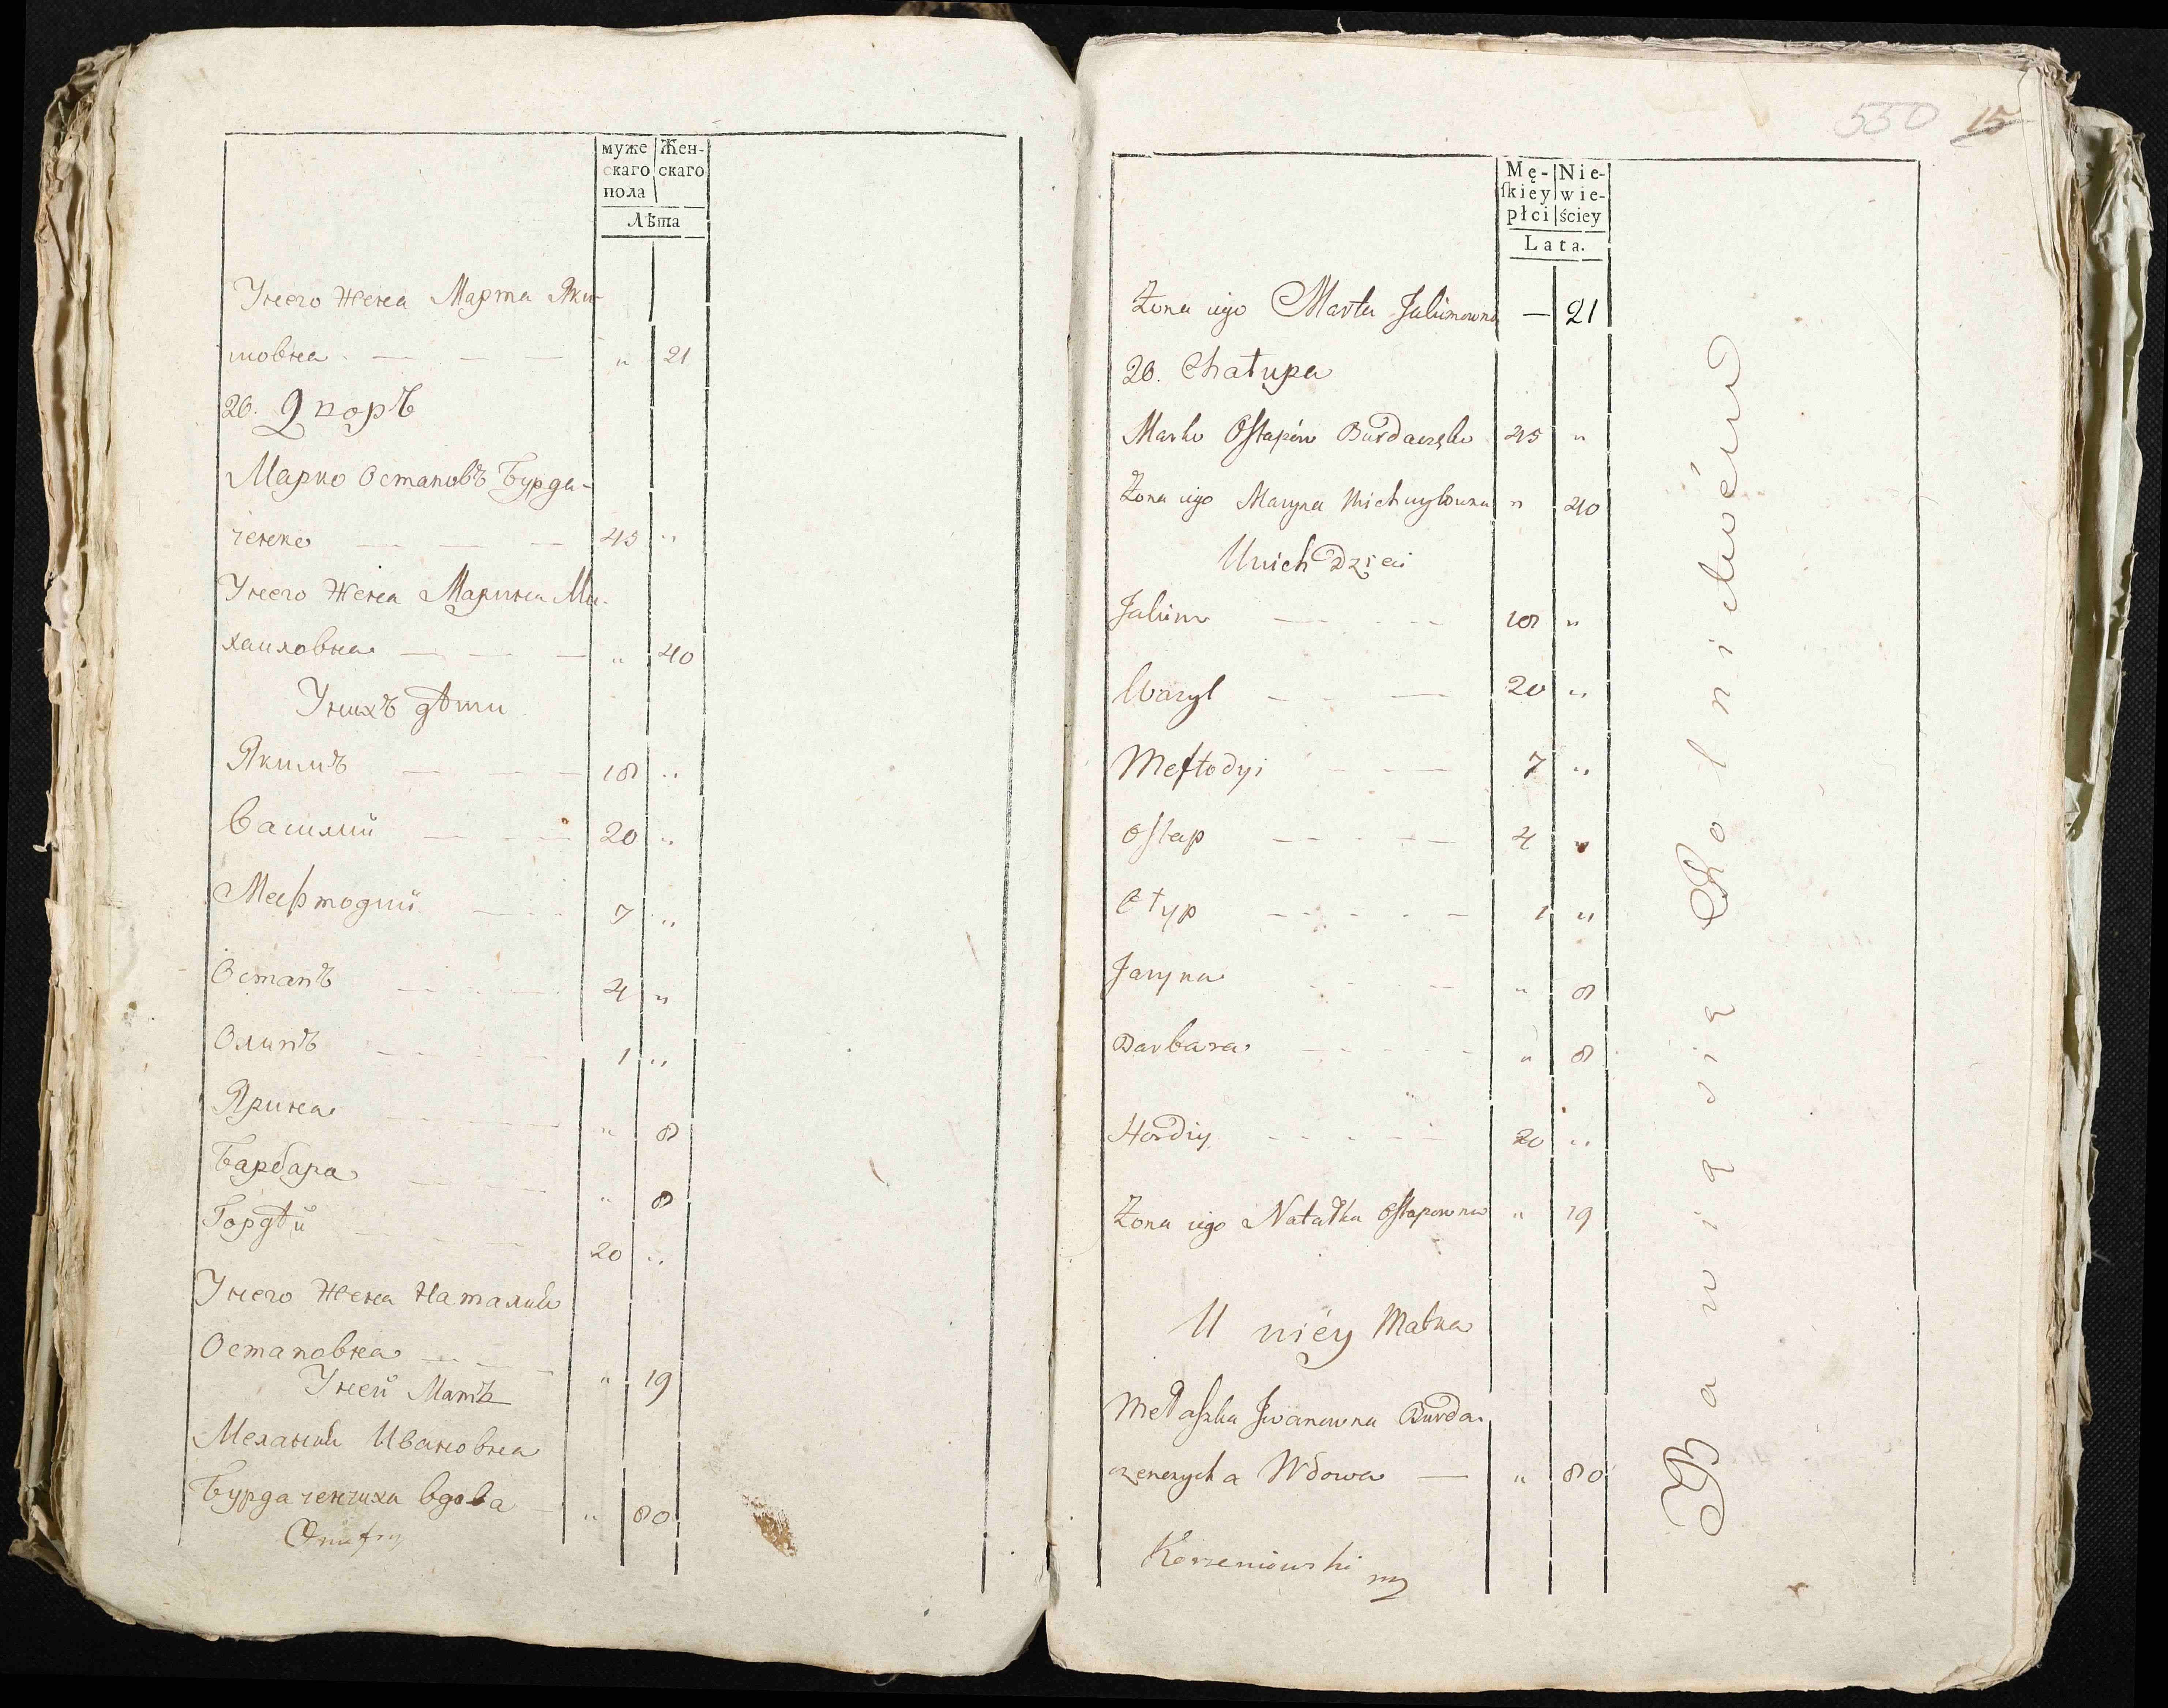 муже
скаго
пола
Жен-
скаго
Лѣта
Унего жена Марта Яки-
мовна — — — " 21
20. Дворъ
Марко Остаповъ Бурда-
ченко — — — 45 "
Унего жена Марина Ми-
хайловна — — — " 40
Унихъ дѣти
Якимъ — — — 18 "
Василий — — — 20 "
Мефтодий — — 7 "
Остапъ — — — 4 "
Олипъ — — — 1 "
Ярина — — — " 8
Барбара — — — " 8
Гордѣй — — — 20 "
Унего жена Наталия
Остаповна — — — " 19
Уней Мать
Мелания Ивановна
Бурдаченчиха вдова — " 80
550 15
Mę-
skiey
płci
Nie-
wie-
ściey
Lata.
Zona iego Marta Jakimowna — 21
20. Chałupa
Marko Ostapów Burdaczęko 45 "
Zona iego Maryna Michayłowna " 40
Unich Dzieci
Jakim — — — 18 "
Wasyl — — — 20 "
Meftodyi — — — 7 "
Ostap — — — 4 "
Ołyp — — — 1 "
Jaryna — — — " 8
Barbara — — — " 8
Hordiy — — — 20 "
Zona iego Natałka Ostapowna " 19
U niéy Matka
Mełaszka Iwanowna Burda-
czenczycha Wdowa — " 80
Korzeniowski mp
Bawią się Rolnictwém